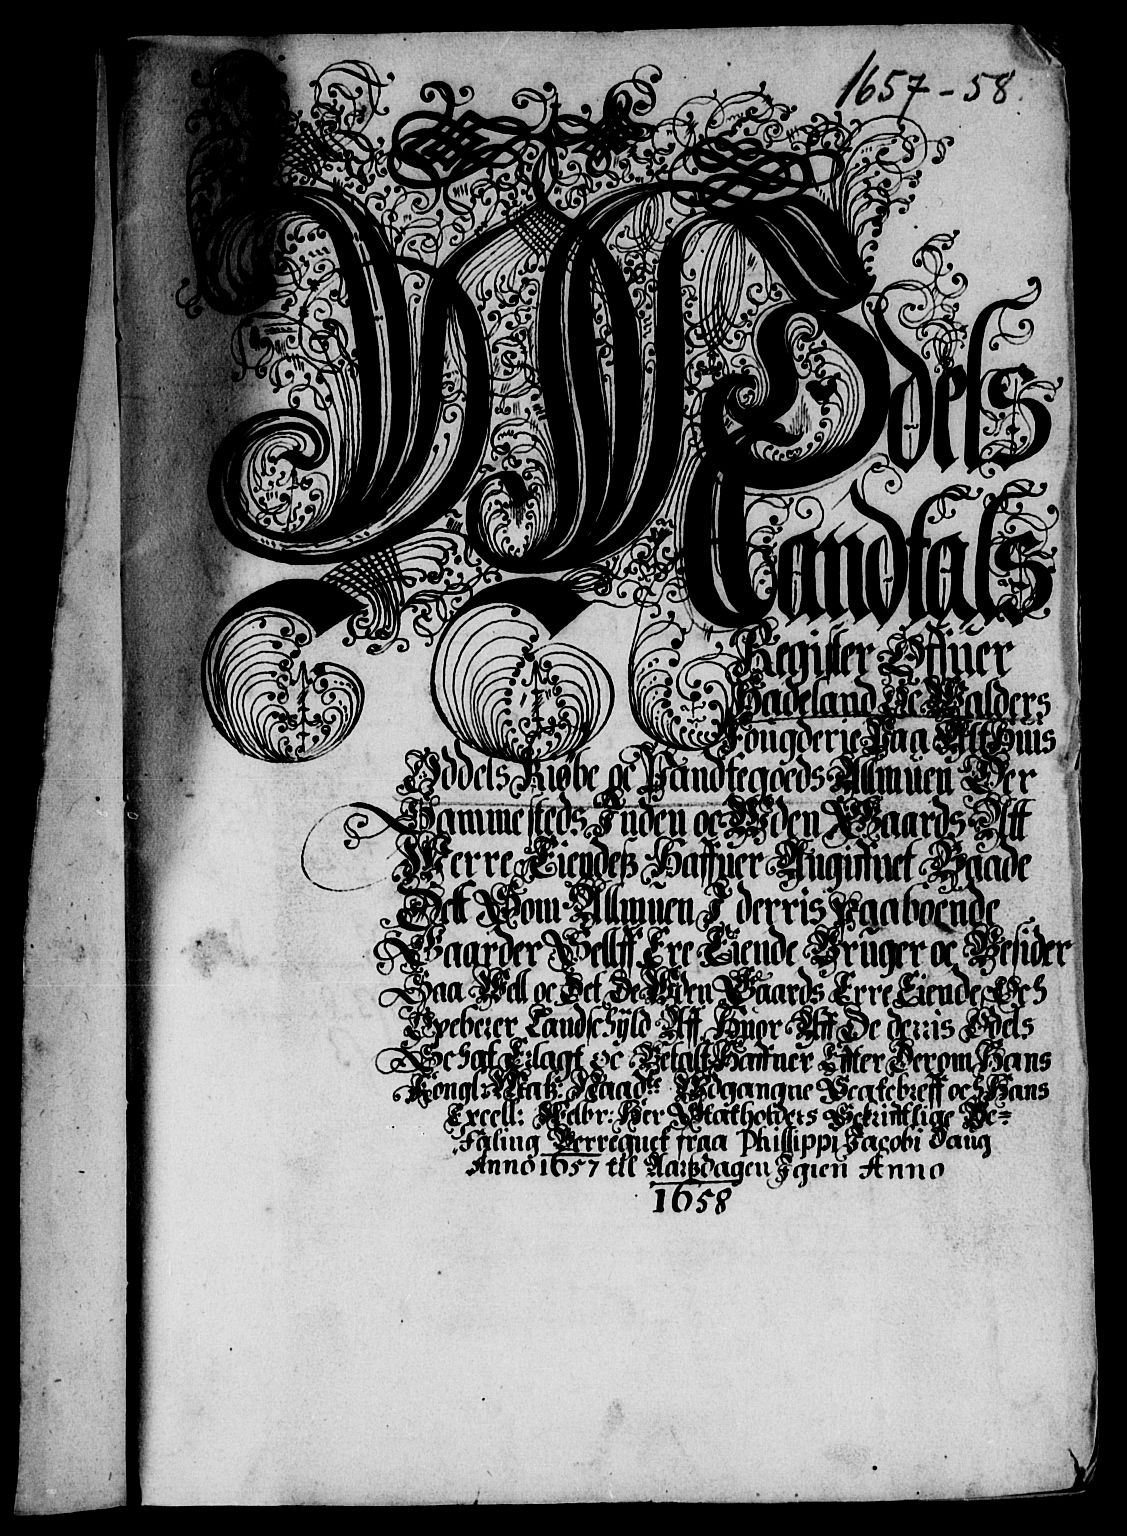 1657-58.
Odels
Landtals
Register Offuer
Hadeland Oc Walders
Fougderie Paa Alt Huis
Oddels Kiøbe oc Pandtegoeds Allmuen Der
Sammesteds Inden oc Uden Gaards Aff
Werre Eiendeß Haffuer Angiffuet Baade
Dett Som Allmuen I derris paaboende
Gaarder Sellff Ere Eiende Bruger oc Besider
Saa Well oc Det De Uden Gaards Erre Eiende Och
Opeberer Landschÿld Aff Huor Aff De derris Odels
Schat Erlagt oc Betalt Haffuer Effter Derom Hans
Kongl: Maÿtz: Naadts: Udgangne Skatebreff och Hans
Excell: Welbr: Her Statholders Schrifftlige Be=
faling Berregnet fraa Phillippi Jacobi Daug
Anno 1657 till Aarßdagen Igien Anno
1658